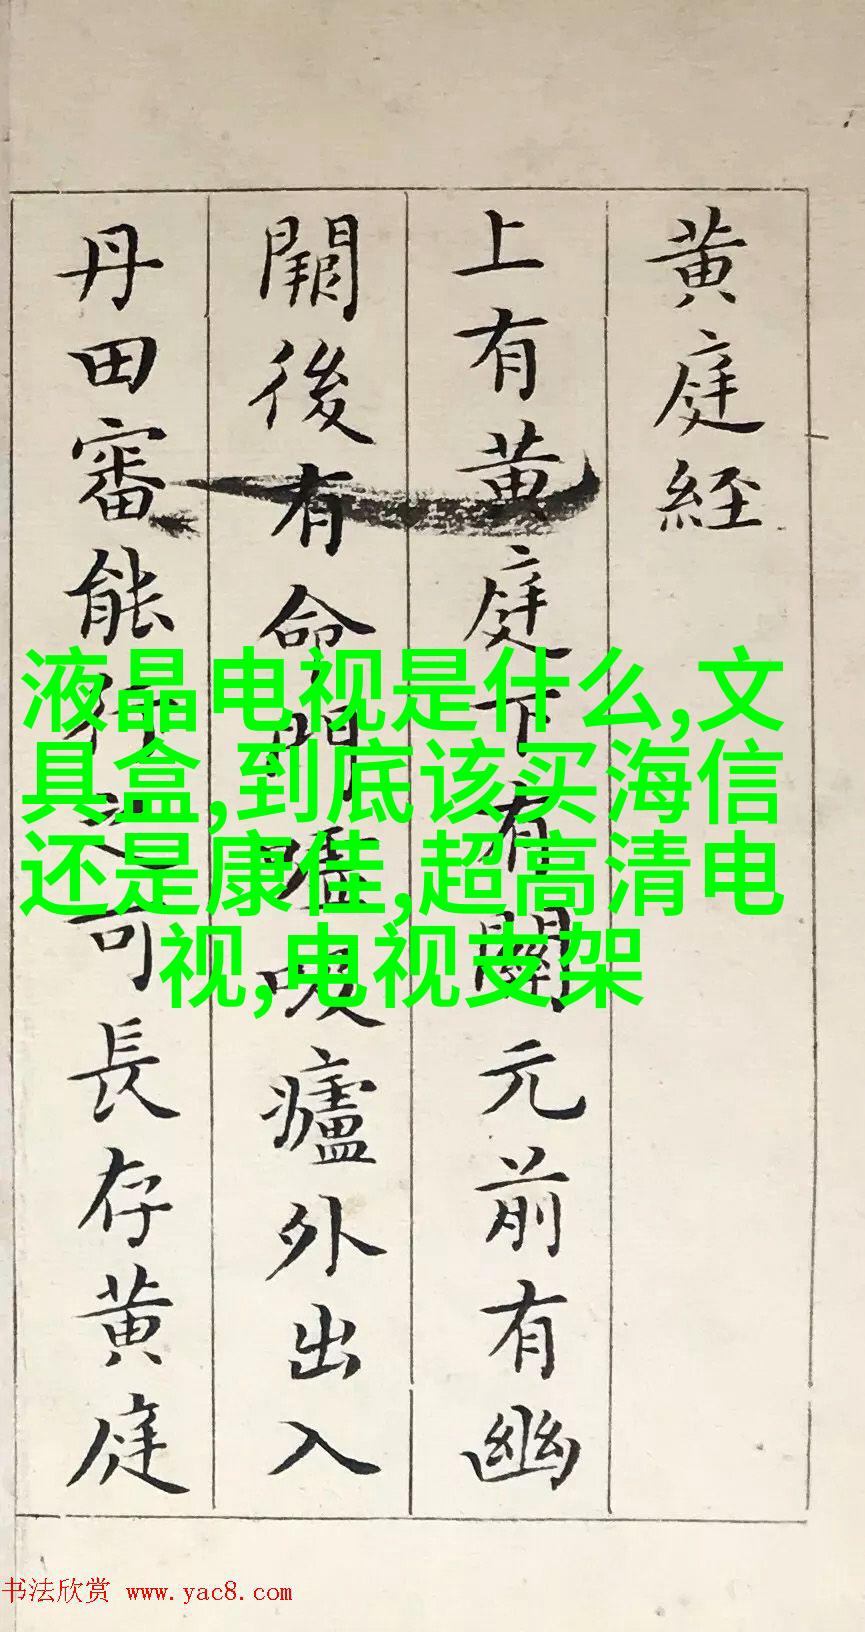 黄庭経
上有黄庭下有關元前有幽
闕後有命門嘘吸廬外出入
丹田審能行之可長存黄庭
液晶电视是什么,文
具盒,到底该买海信
还是康佳,超高清电
视,电视支架
书法欣赏 www.yac8.com